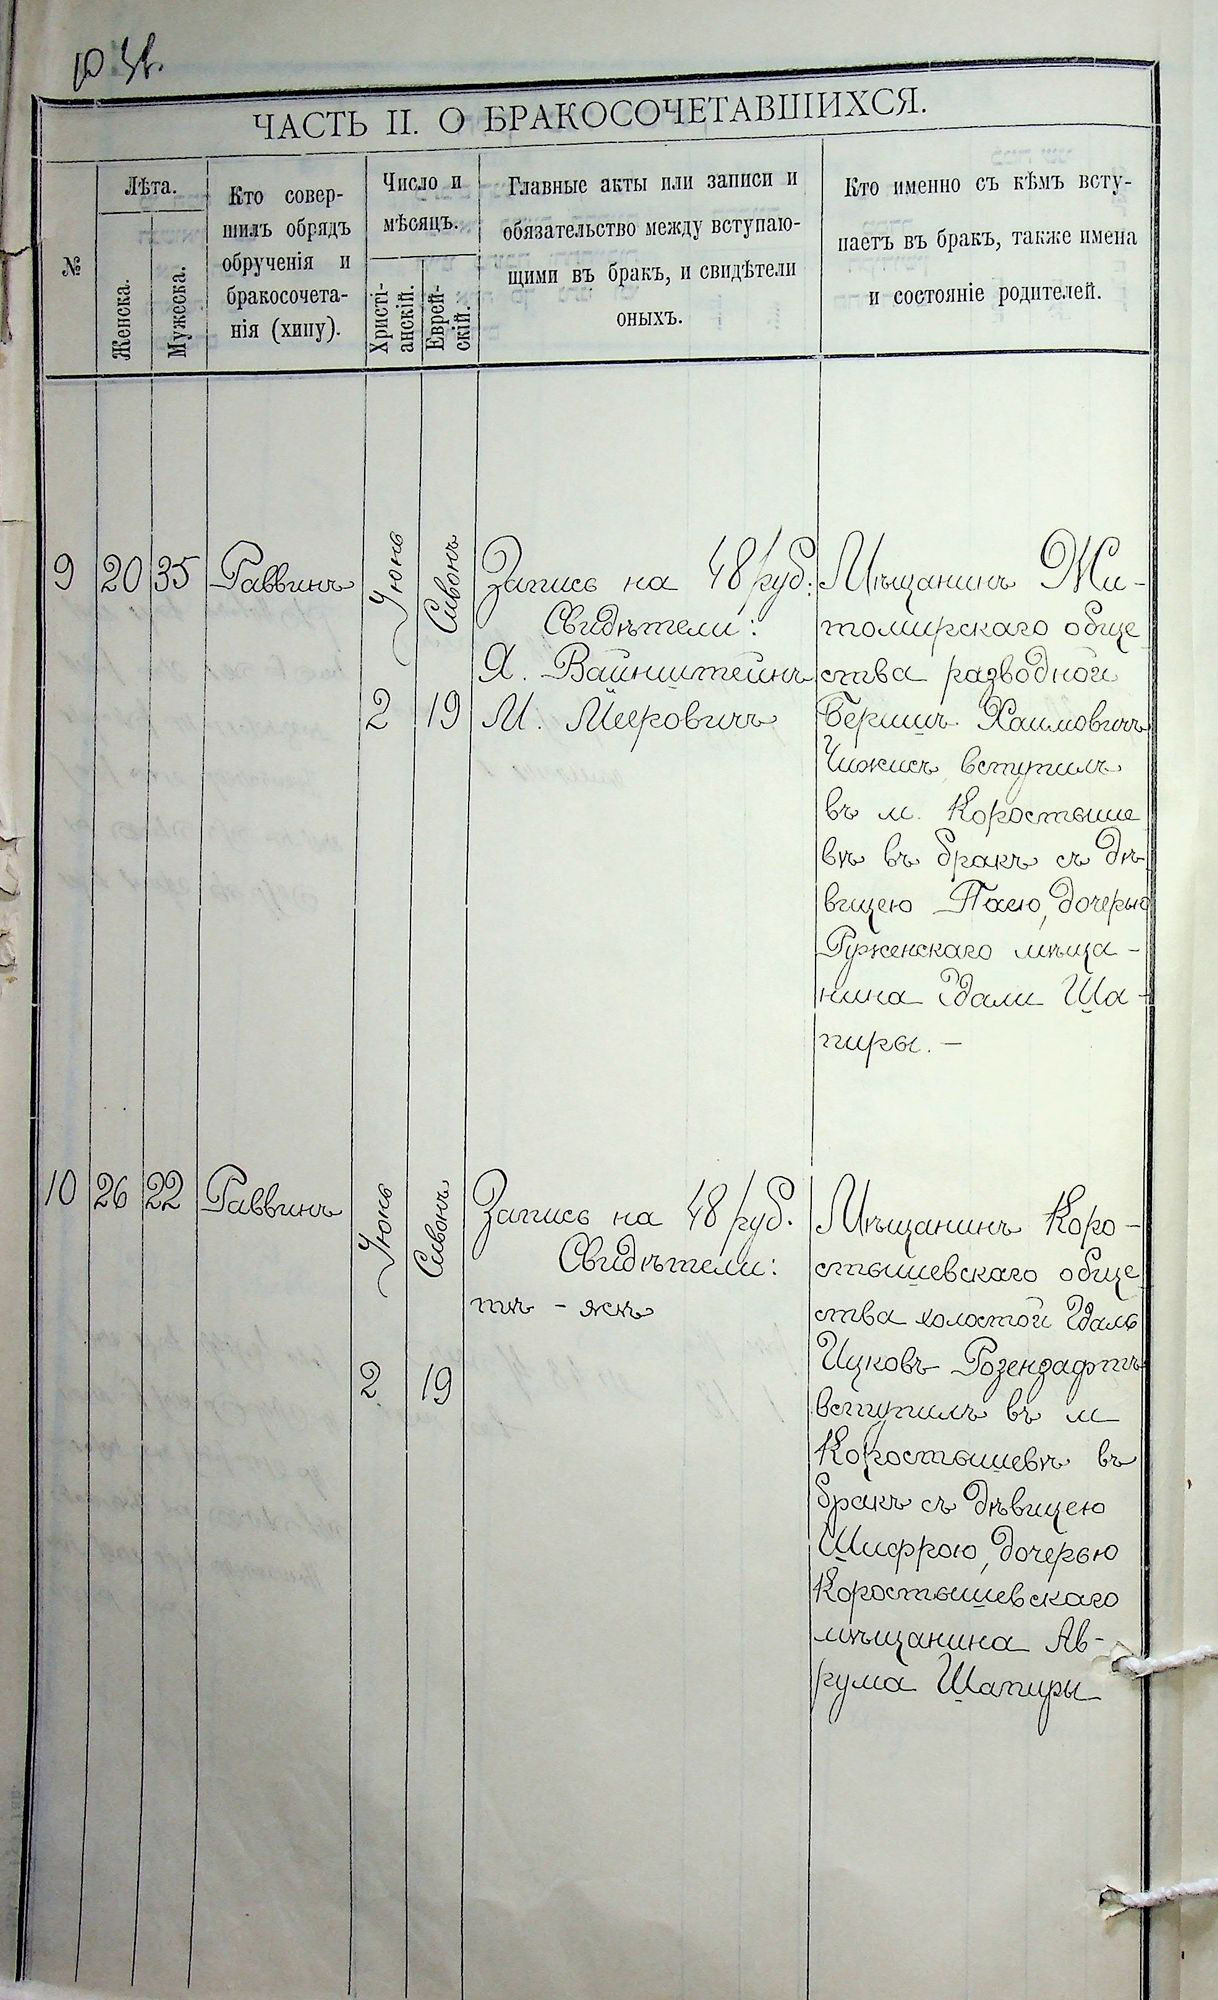 ЧАСТЬ II. О БРАКОСОЧЕТАВШИХСЯ.
№
Лѣта.
Женска.
Мужеска.
Кто совер-
шилъ обрядъ
обрученія и
бракосочета-
нія (хипу).
Число и
мѣсяцъ.
Христі-
анскій.
Еврей-
скій.
Главные акты или записи и
обязательство между вступаю-
щими въ бракъ, и свидѣтели
оныхъ.
Кто именно съ кѣмъ всту-
паетъ въ бракъ, также имена
и состояніе родителей.
9
20
35
Раввинъ
Июнь
2
Сивонъ
19
Запись на 48 руб.
Свидѣтели:
Я. Вайнштейнъ
М. Мееровичъ
Мѣщанинъ Жи-
томирскаго обще
ства разводной
Бершъ Хаимовичъ
Чижисъ вступилъ
въ м. Коростыше
вѣ въ бракъ съ дѣ
вицею Пасею, дочерью
Руженскаго мѣща-
нина Гдали Ша-
пиры. -
10
26
22
Раввинъ
Июнь
2
Сивонъ
19
Запись на 48 руб.
Свидѣтели:
тѣ - жѣ
Мѣщанинъ Коро-
стышевскаго обще
ства холостой Гдаль
Ицковъ Розендафтъ
вступилъ въ м
Коростышевѣ въ
бракъ съ дѣвицею
Шифрою, дочерью
Коростышевскаго
мѣщанина Ав-
рума Шапиры